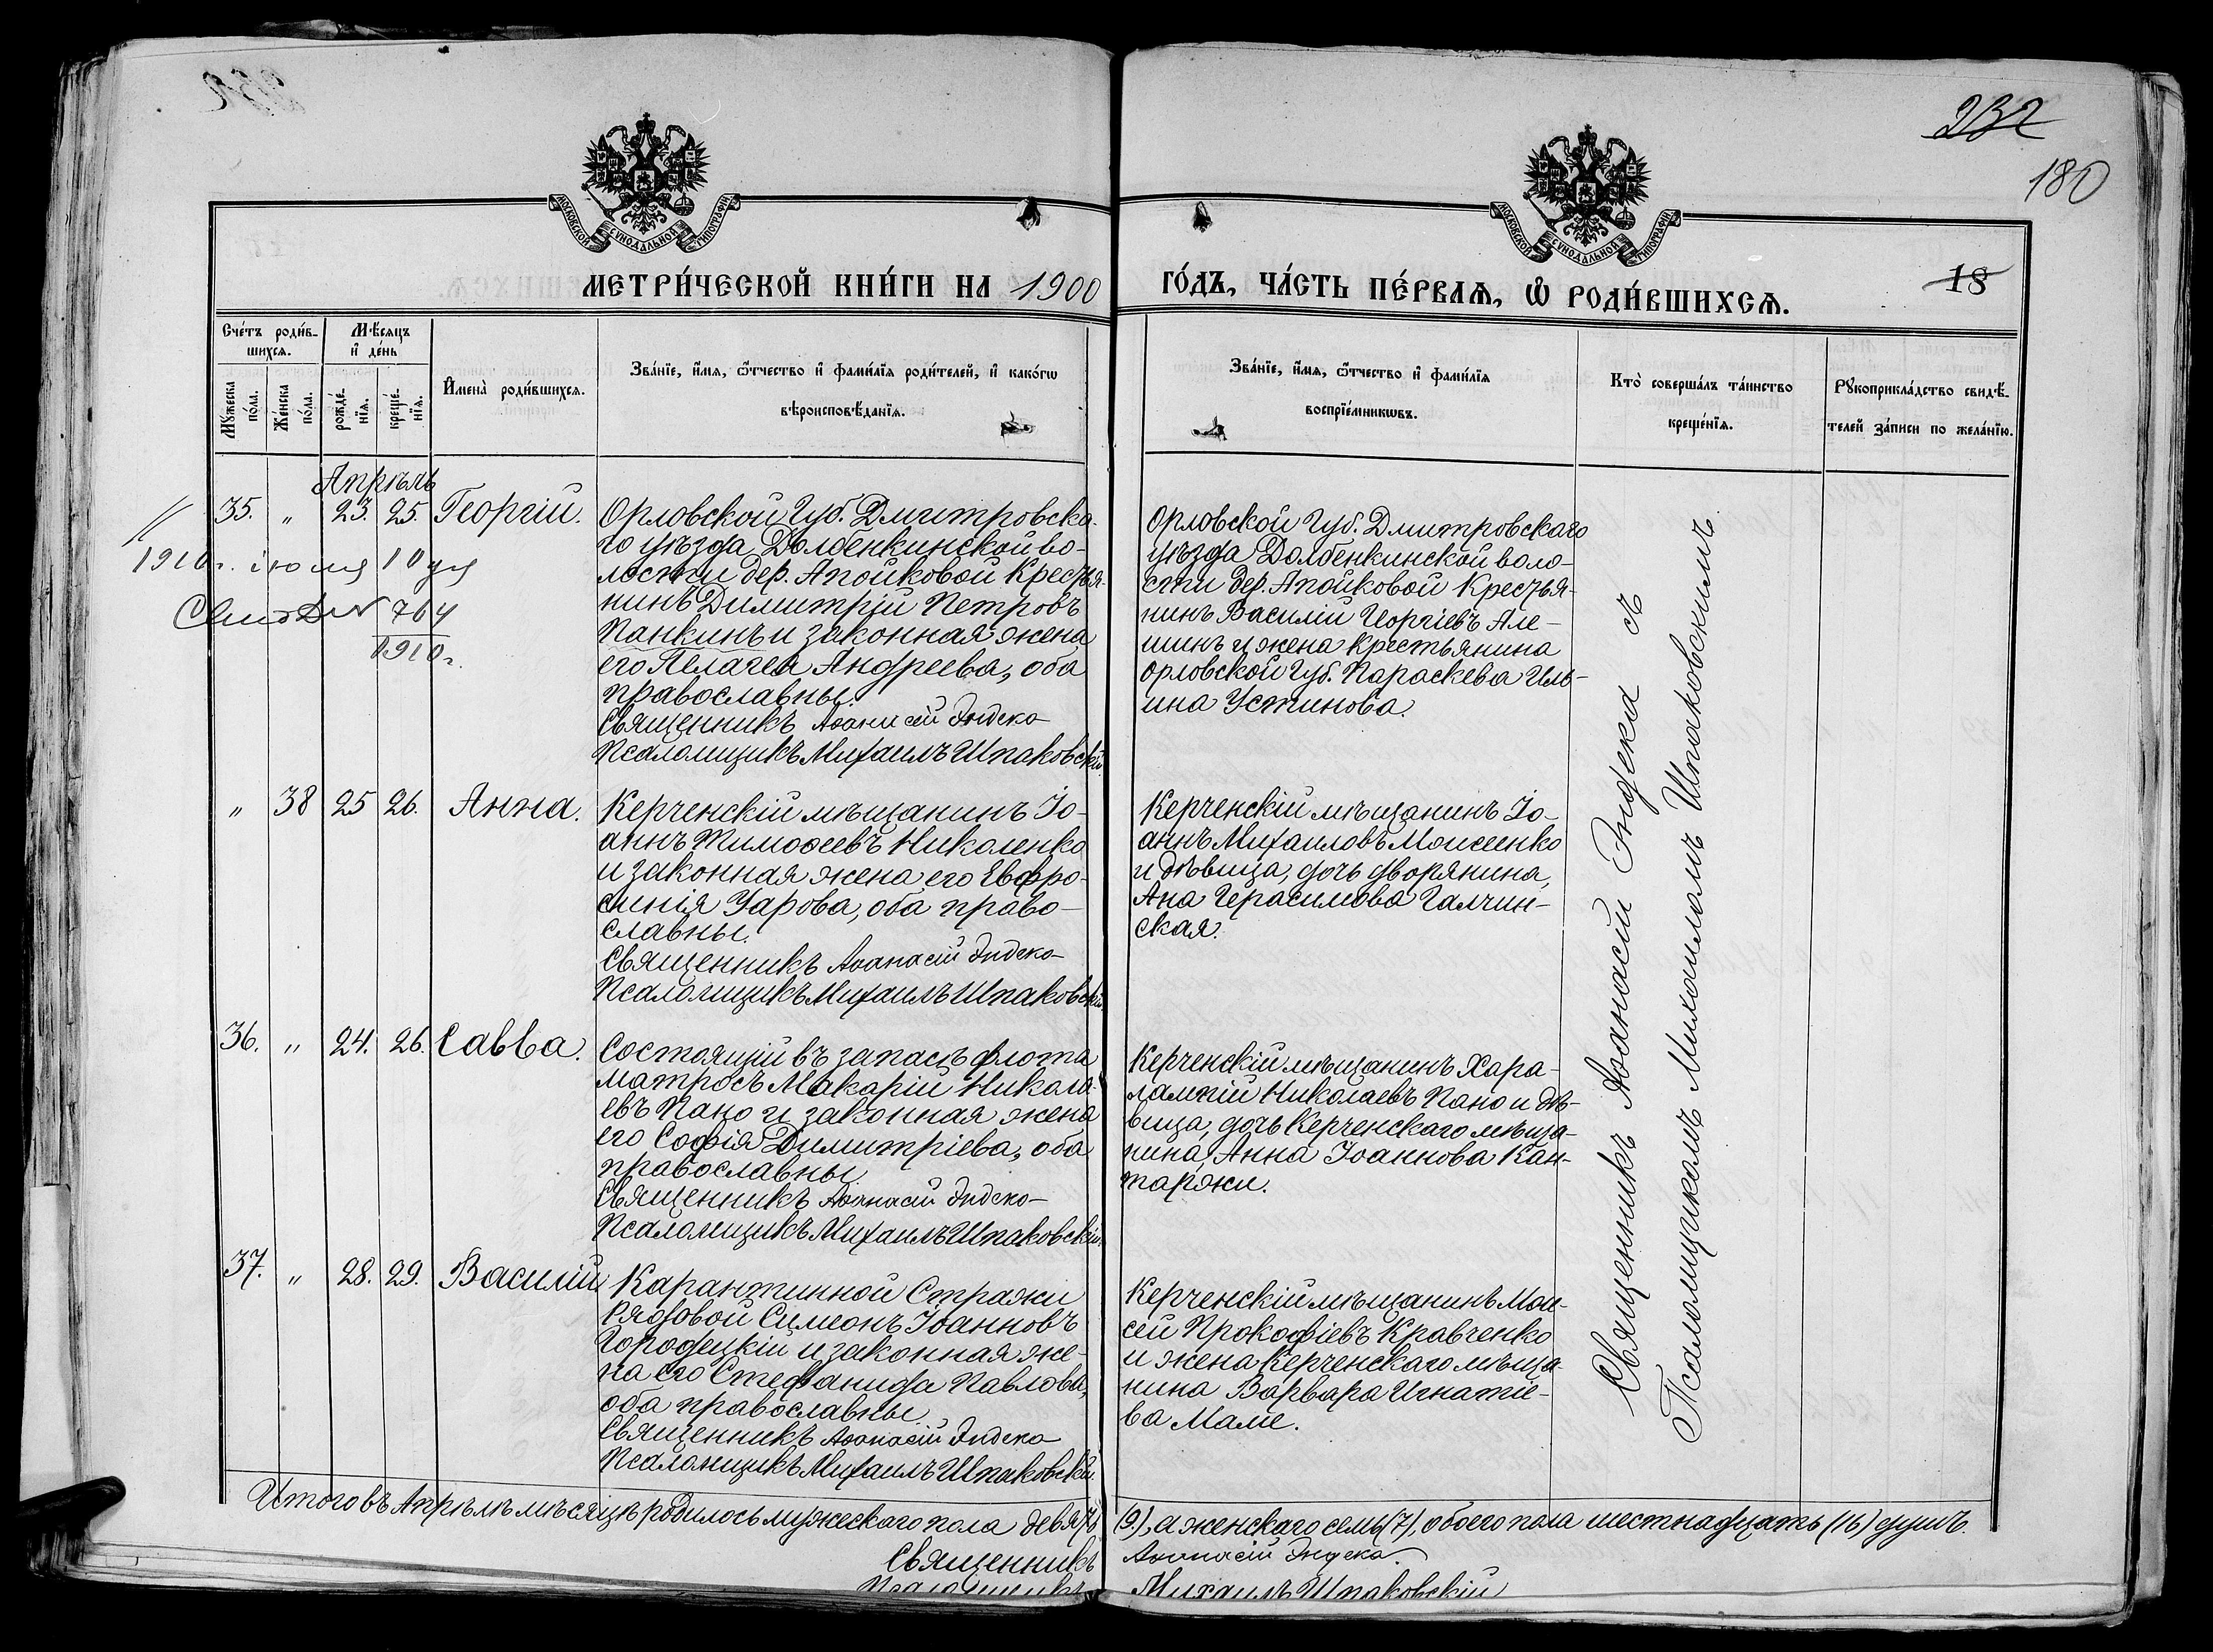 232
180
18
МОСКОВСКОЙ СУНОДАЛЬНОЙ ТИПОГРАФІИ
МОСКОВСКОЙ СУНОДАЛЬНОЙ ТИПОГРАФІИ
МЕТРИ́ЧЕСКОЙ КНИ́ГИ НА 1900 ГО́ДЪ, ЧА́СТЬ ПЕ́РВАѦ, Ѡ РОДИ́ВШИХСѦ.
Сче́тъ роди́в-
шихся.
Мꙋжеска по́ла.
Же́нска по́ла.
Мѣ́сяцъ
и де́нь
рожде́-
нїя.
креще́-
нїя.
Имена̀ роди́вшихся.
Зва́нїе, и́мя, ѻ́тчество и фами́лїя роди́телей, и како́гѡ
вѣроисповѣ́данїя.
Зва́нїе, и́мя, ѻ́тчество и фами́лїя
воспрїе́мникѡвъ.
Кто̀ соверша́лъ та́инство
креще́нїя.
Рꙋкоприкла́дство свидѣ́-
телей за́писи по жела́нїю.
Апрѣль
35. „ 23. 25. Георгій.
Орловской Губ. Дмитровска-
го уѣзда Долбенкинской во-
лости дер. Апойковой Крестья-
нинъ Димитрій Петровъ
Панкинъ и законная жена
его Пелагея Андреева, оба
православны.
Священникъ Аѳанасій Эндека
Псаломщикъ Михаилъ Шпаковскій.
1910 г. іюля 10 дня
№ 764
1910 г.
Орловской Губ. Дмитровскаго
уѣзда Долбенкинской воло-
сти дер. Апойковой Крестья-
нинъ Василій Георгіевъ Але-
шинъ и жена крестьянина
Орловской Губ. Параскева Иль-
ина Устинова.
„ 38 25 26. Анна.
Керченскій мѣщанинъ Іо-
аннъ Тимоѳеевъ Николенко
и законная жена его Евфро-
синія Уарова, оба право-
славны.
Священникъ Аѳанасій Эндека
Псаломщикъ Михаилъ Шпаковскій
Керченскій мѣщанинъ Іо-
аннъ Михаиловъ Моисеенко
и дѣвица, дочь дворянина,
Ана Герасимова Галчин-
ская.
36. „ 24. 26. Савва.
Состоящій въ запасѣ флота
матросъ Макарій Никола-
евъ Пано и законная жена
его Софія Димитріева, оба
православны.
Священникъ Аѳанасій Эндека
Псаломщикъ Михаилъ Шпаковскій
Керченскій мѣщанинъ Хара-
лампій Николаевъ Пано и дѣ-
вица, дочь Керченскаго мѣща-
нина, Анна Іоаннова Кан-
таржи.
37. „ 28. 29. Василій
Карантинной Стражи
Рядовой Симеонъ Іоанновъ
Городецкій и законная же-
на его Стефанида Павлова,
оба православны.
Священникъ Аѳанасій Эндека
Псаломщикъ Михаилъ Шпаковскій.
Керченскій мѣщанинъ Мои-
сей Прокофіевъ Кравченко
и жена Керченскаго мѣща-
нина Варвара Игнатіе-
ва Маме.
Священникъ Аѳанасій Эндека съ
Псаломщикомъ Михаиломъ Шпаковскимъ
Итого въ Апрѣлѣ мѣсяцѣ родилось мужескаго пола девять (9), а женскаго семь (7), обоего пола шестнадцать (16) душъ.
Священникъ Аѳанасій Эндека.
Псаломщикъ Михаилъ Шпаковскій